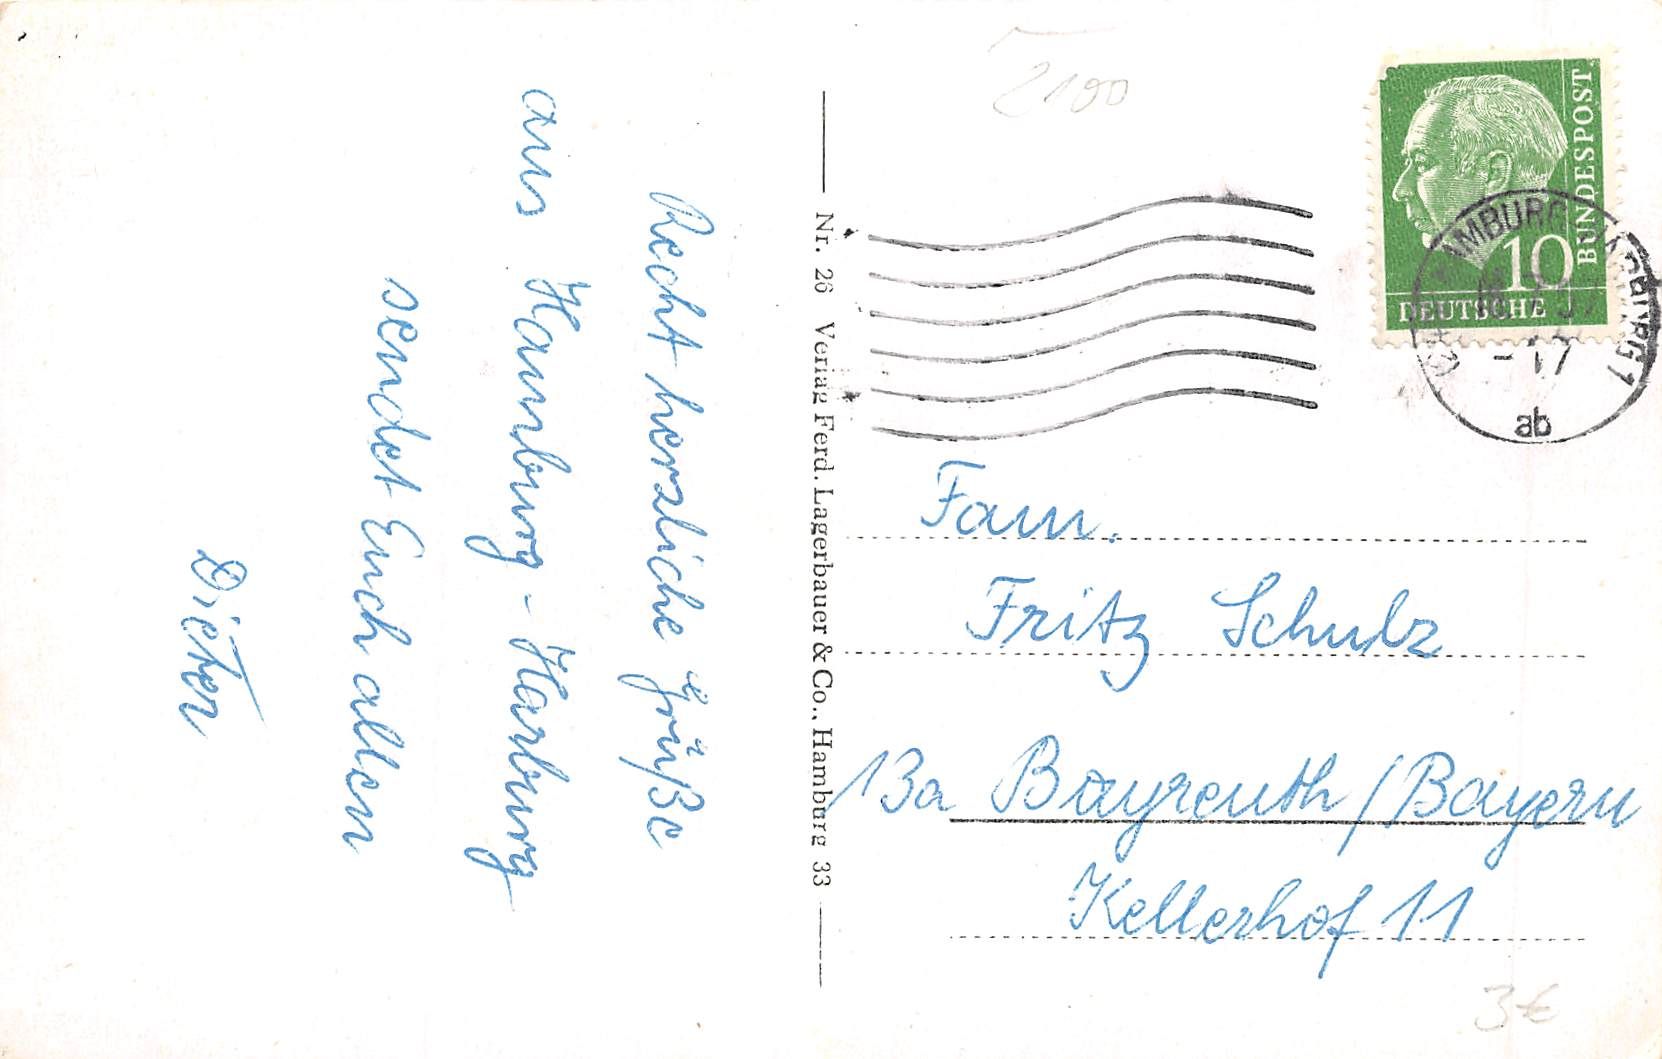 Recht herzliche Grüße
aus Hamburg - Harburg
sendet Euch allen
Dieter
Nr. 26 Verlag Ferd. Lagerbauer & Co., Hamburg 33
2100
DEUTSCHE
BUNDESPOST
10
HAMBURG-HARBURG 1
-17
ab
Fam.
Fritz Schulz
13a Bayreuth / Bayern
Kellerhof 11
3€